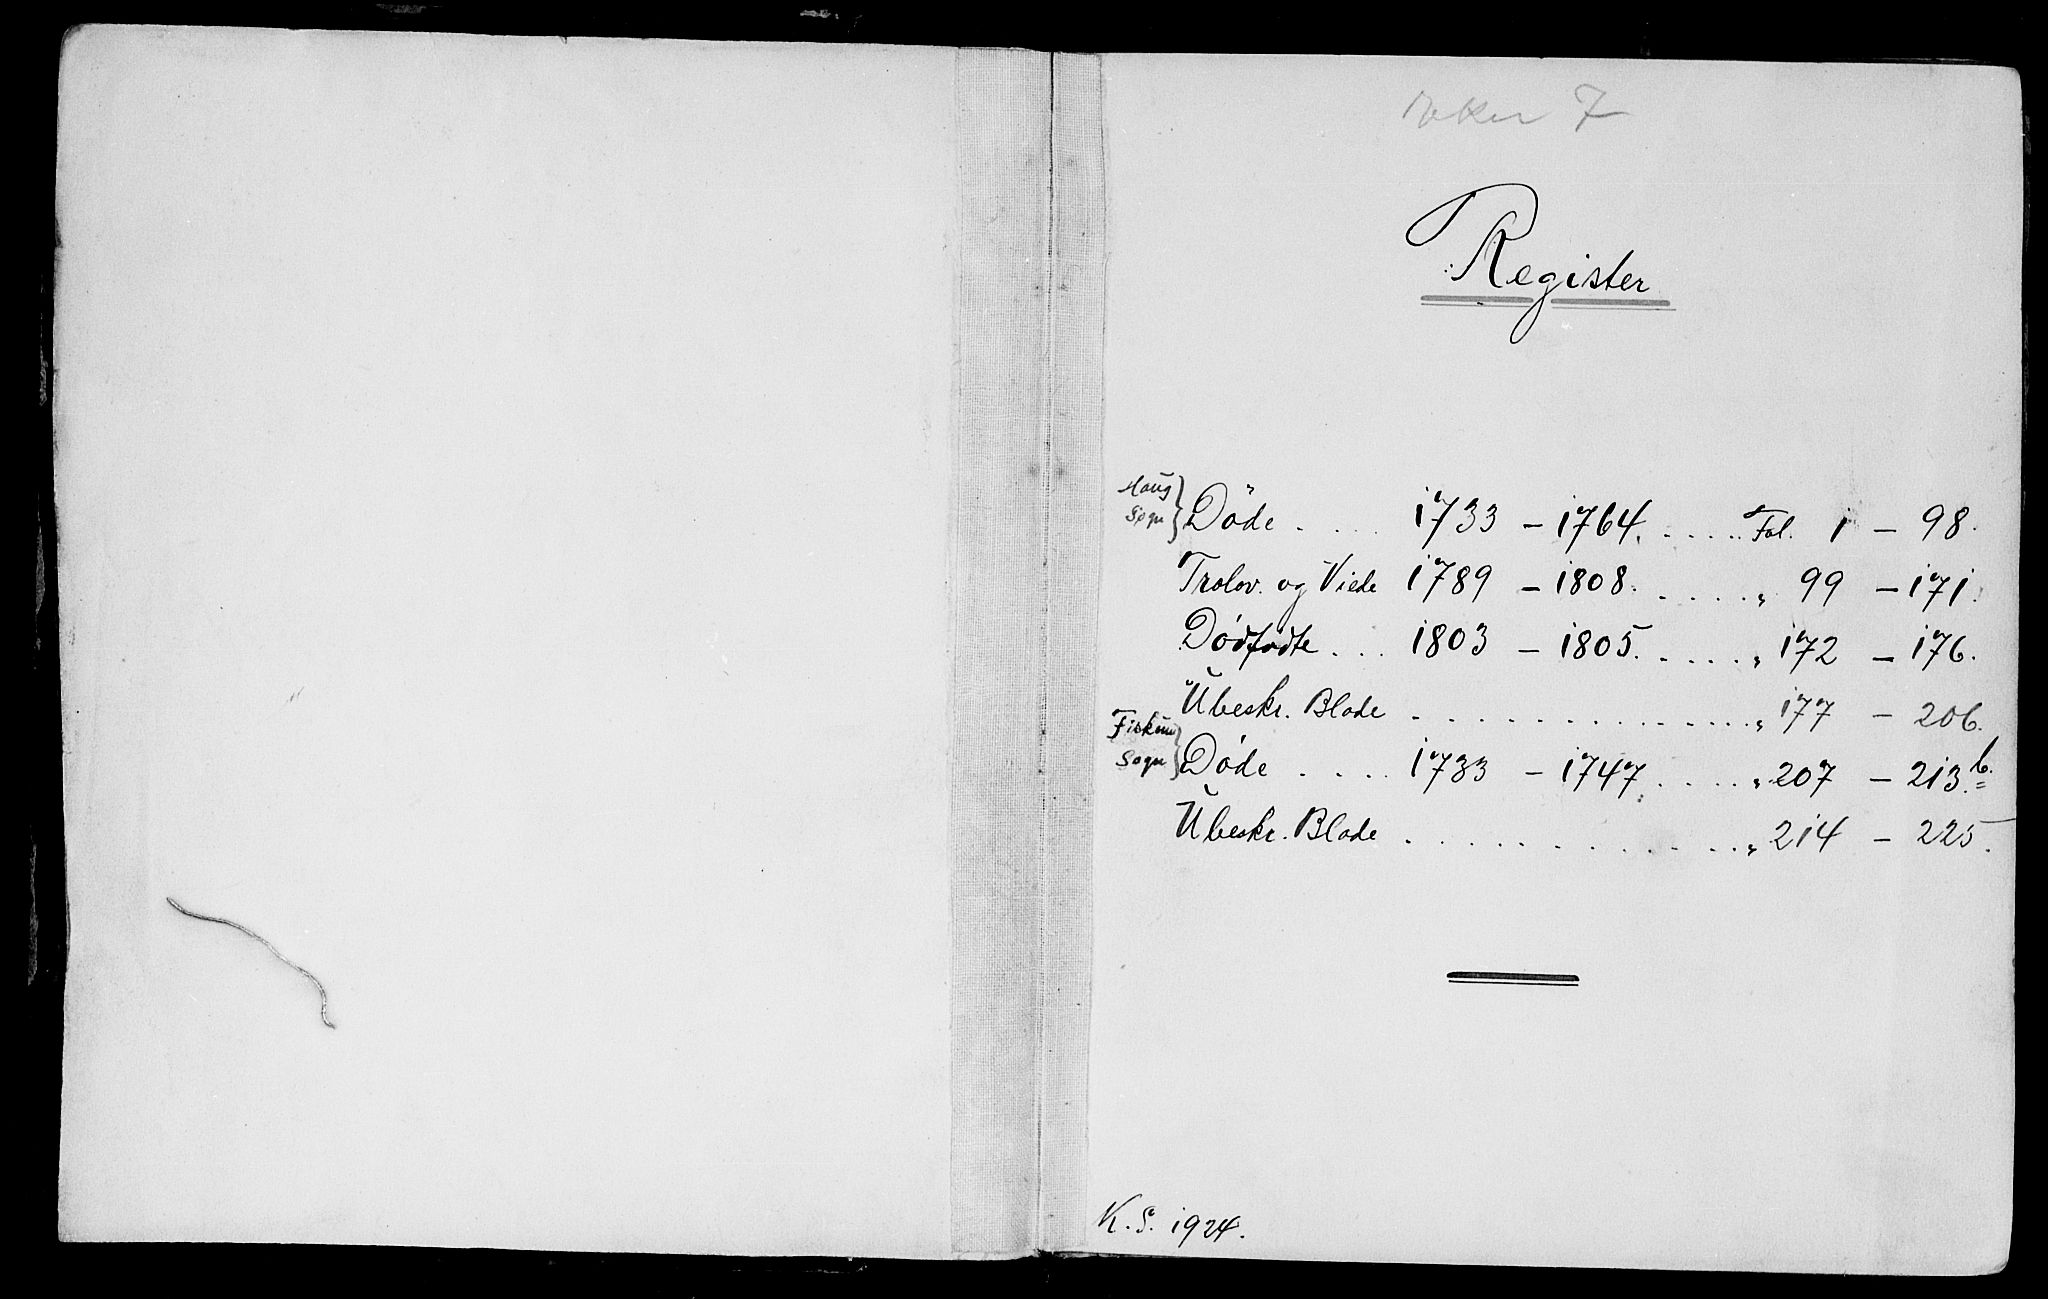 Eker 7
Register
Haug Sogn } Döde . . . . 1733 – 1764. . . . . Fol. 1 – 98.
Trolov. og Viede 1789 – 1808. . . . . „ 99 – 171.
Dødfødte . . . 1803 – 1805. . . . . „ 172 – 176.
Ubeskr. Blade . . . . . . . . . . . . . . „ 177 – 206.
Fiskum Sogn } Døde . . . . 1733 – 1747. . . . . „ 207 – 213.b.
Ubeskr. Blade . . . . . . . . . . . . . . „ 214 – 225.
K. S. 1924.